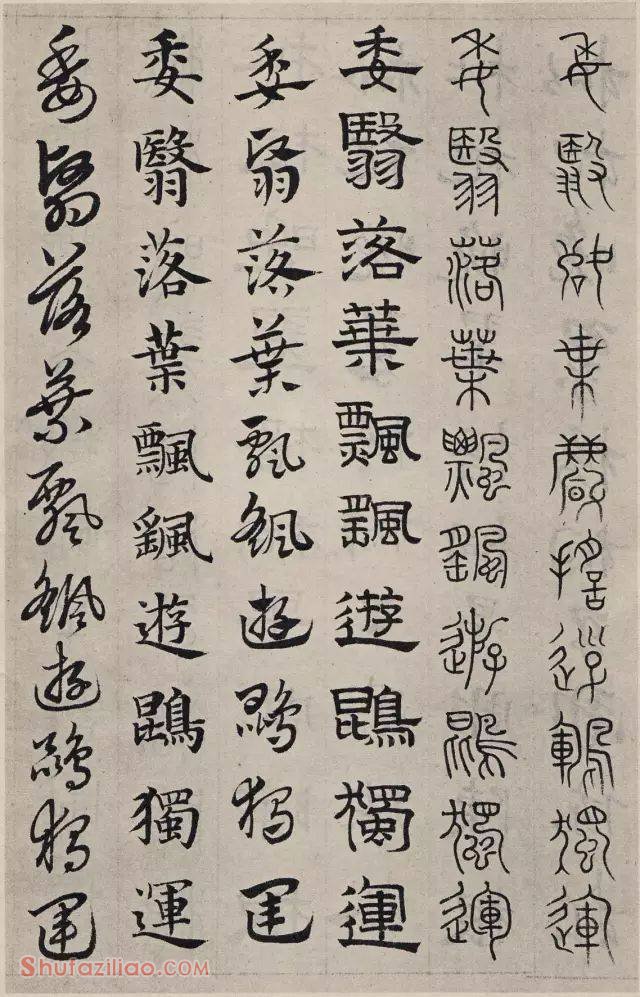 委翳落葉飄颻遊鵾獨運
委翳落葉飄颻遊鵾獨運
委翳落葉飄颻遊鵾獨運
委翳落葉飄颻遊鵾獨運
委翳落葉飄颻遊鵾獨運
委翳落葉飄颻遊鵾獨運
Shufaziliao.COM